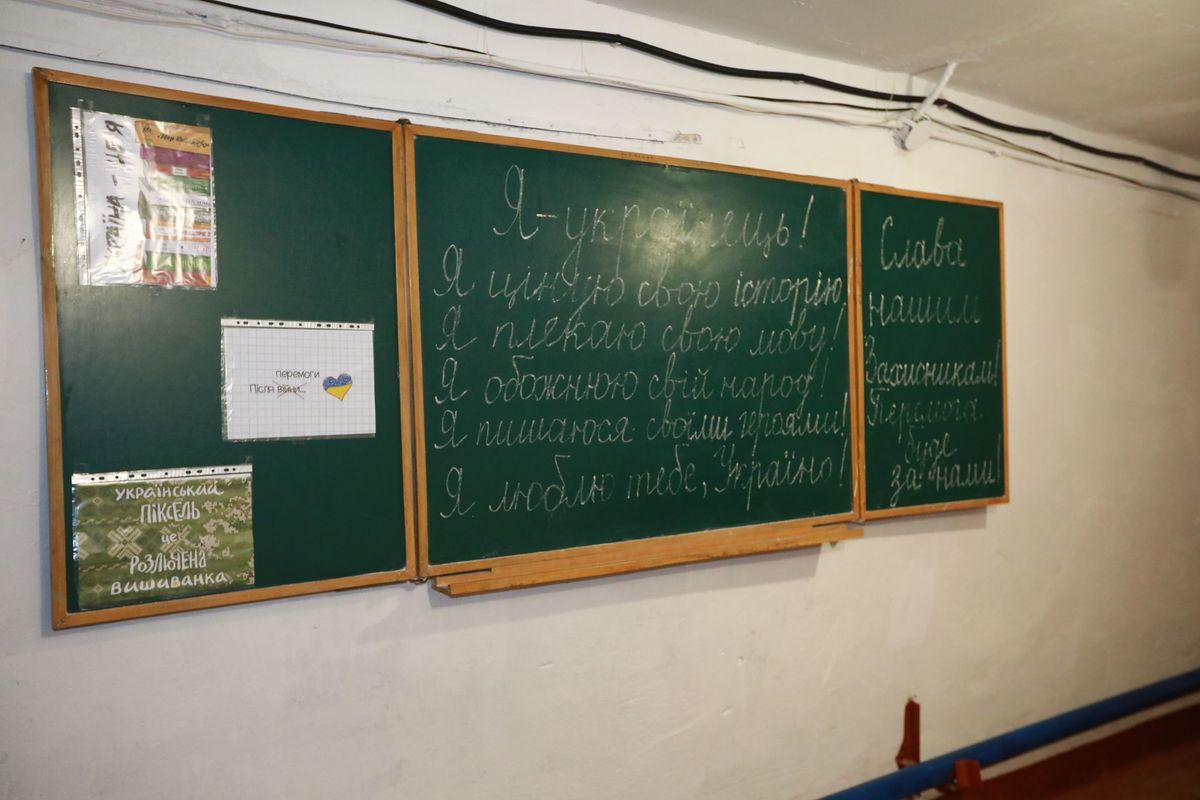 перемоги
Після війни...
УКРАЇНСЬКИЙ
ПІКСЕЛЬ
це
РОЗЛЮЧЕНА
вишиванка
Я - українець!
Я ціную свою історію.
Я плекаю свою мову!
Я обожнюю свій народ!
Я пишаюся своїми героями!
Я люблю тебе, Україно!
Слава
нашим
Захисникам!
Перемога
буде
за нами!